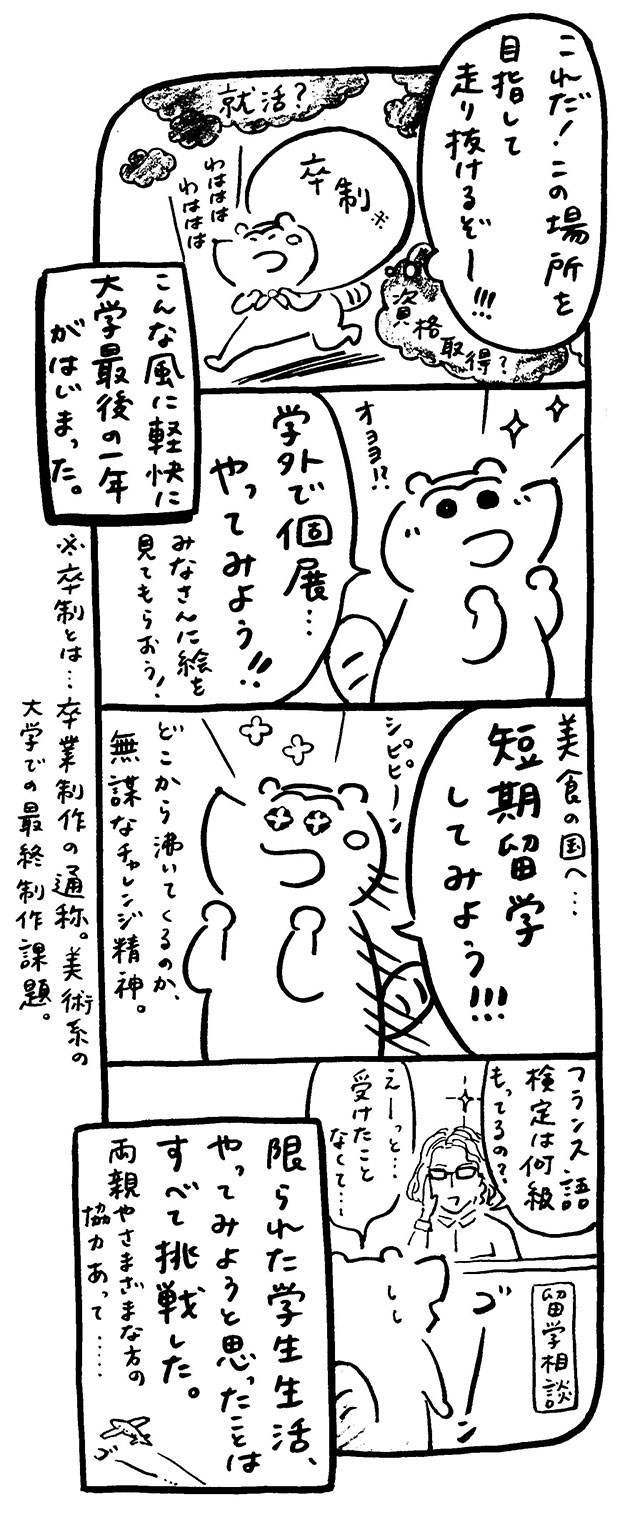 これだ！この場所を
目指して
走り抜けるぞー!!!
就活？
卒制※
わははは
わははは
資格取得？
こんな風に軽快に
大学最後の一年
がはじまった。
オヨヨ!?
学外で個展…
やってみよう!!
みなさんに絵を
見てもらおう！
美食の国へ…
短期留学
してみよう!!!
シピピーン
どこから沸いてくるのか、
無謀なチャレンジ精神。
※卒制とは…卒業制作の通称。美術系の
大学での最終制作課題。
フランス語
検定は何級
もってるの？
えーっと…
受けたこと
なくて…
留学相談
ゴーン
限られた学生生活、
やってみようと思ったことは
すべて挑戦した。
両親やさまざまな方の
協力あって……
ゴー